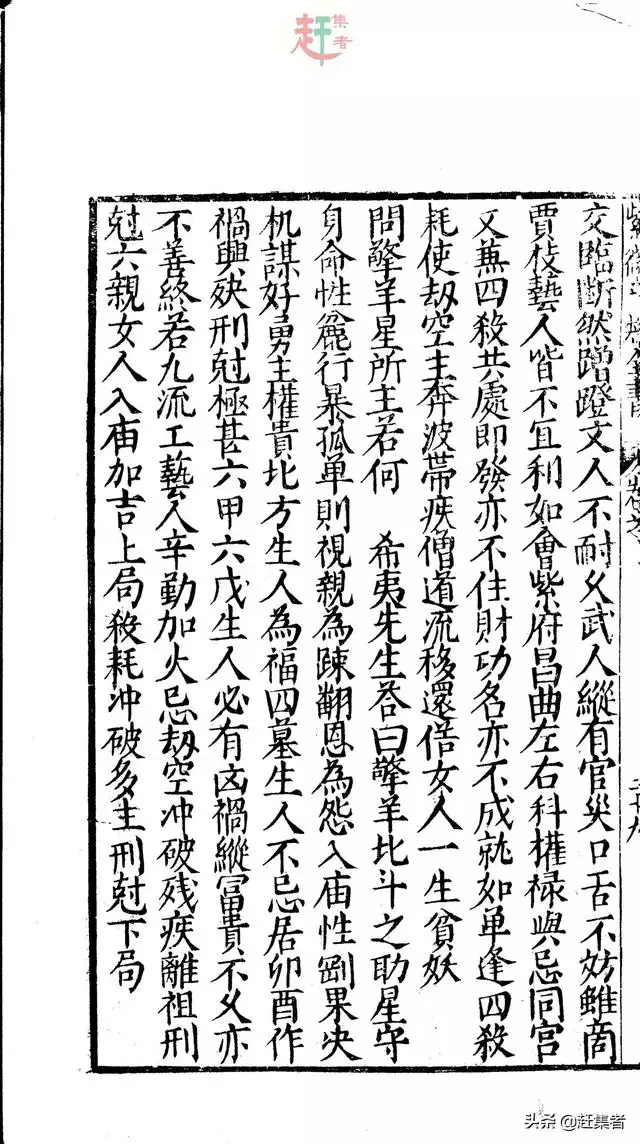 赶集者
交臨斷然蹭蹬文人不耐久武人縱有官災口舌不妨雖商
賈技藝人皆不宜利如會紫府昌曲左右科權祿與忌同宮
又兼四殺共處即發亦不住財功名亦不成就如单逢四殺
耗使劫空主奔波帶疾僧道流移還俗女人一生貧妖
問擎羊星所主若何 希夷先生答曰擎羊北斗之助星守
身命性麄行暴孤单則視親為踈翻恩為怨入庙性剛果决
机謀好勇主權貴北方生人為福四墓生人不忌居卯酉作
禍興殃刑尅極甚六甲六戊生人必有凶禍縱富貴不久亦
不善終若九流工藝人辛勤加火忌劫空冲破残疾離祖刑
尅六親女人入庙加吉上局殺耗冲破多主刑尅下局
头条@赶集者